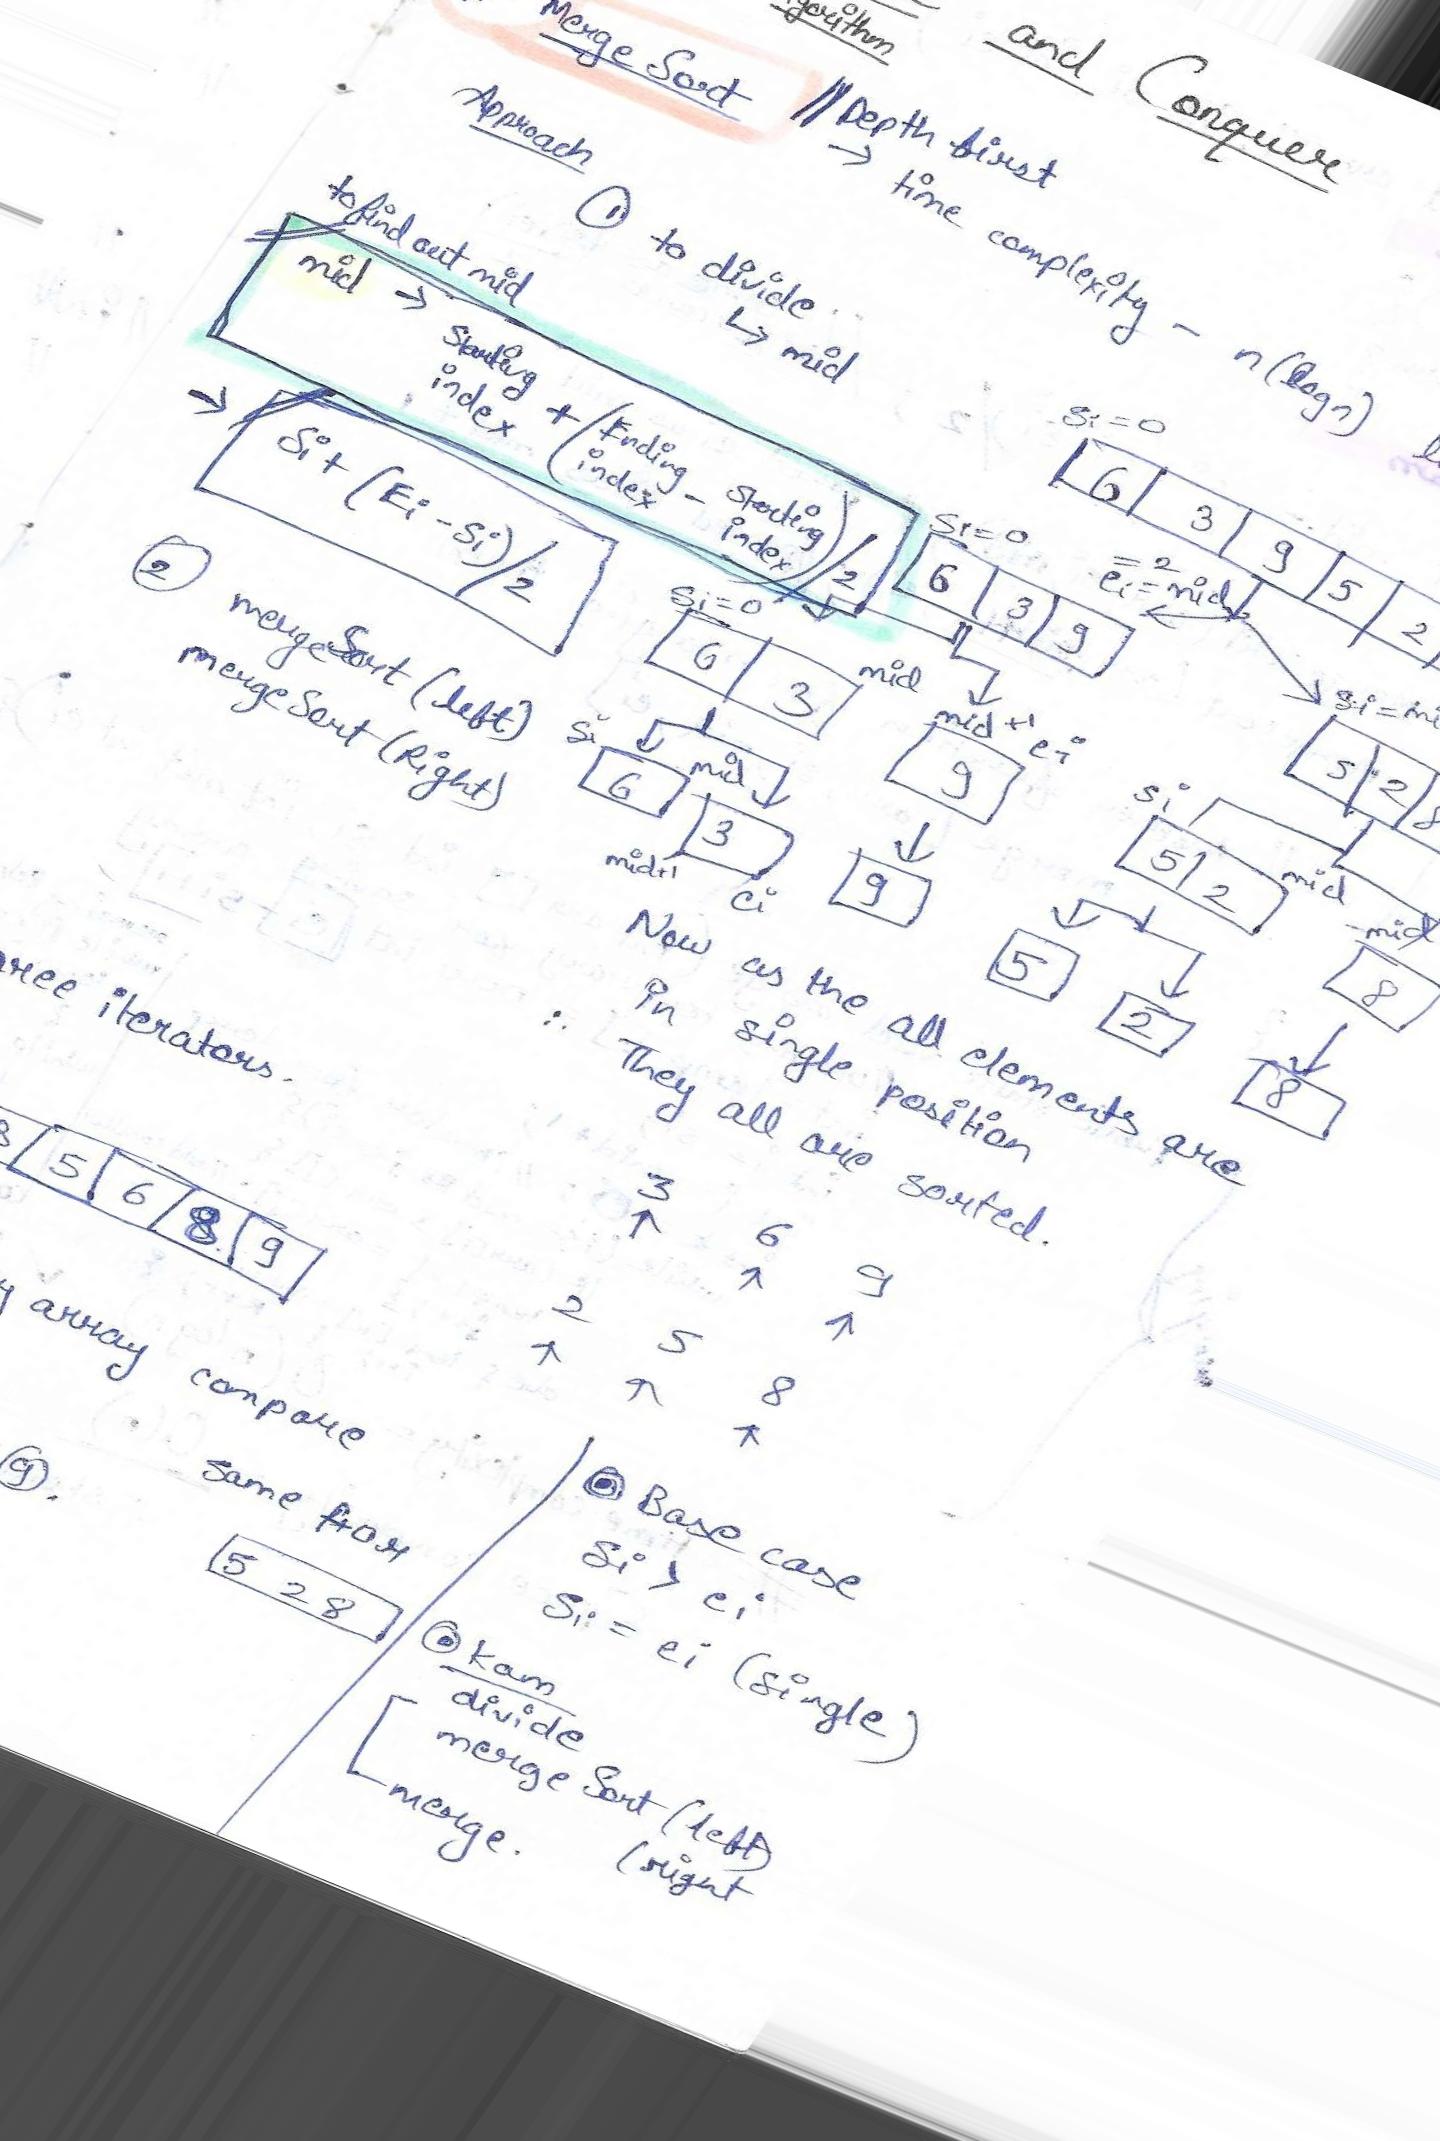 and Conquer
Merge Sort // Depth first
→ time complexity - n(logn)
Approach
① to divide
↳ mid
to find out mid
mid → Starting index + (Ending index - Starting index)/2
→ Si + (Ei - Si)/2
② mergeSort (left)
mergeSort (Right)
Si=0
6 3 9 5 2
Si=0
6 3 9
= 2
ei = mid
Si=0
6 3
mid
mid+1 ei
9
Si
6
mid
3
mid+1 ei
9
5 2 8
Si
5 2
mid
mid
8
5
2
8
Now as the all elements are
in single position
∴ They all are sorted.
iterators.
5 6 8 9
3 6 9
↑ ↑ ↑
2 5 8
↑ ↑ ↑
array compare
⑨.
same for
5 2 8
Base case
Si > ei
Si = ei (single)
Kam
divide
mergeSort (left)
(right
merge.